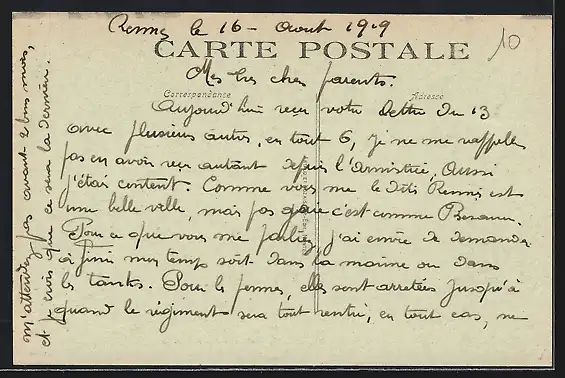 Rennes le 16 - Aout 1919
10
CARTE POSTALE
Mes très chers parents.
Correspondance
Adresse
Aujourd'hui reçu votre lettre du 13
avec plusieurs autres, en tout 6, je ne me rappelle
pas en avoir reçu autant depuis l'armistice, aussi
j'étais content. Comme vous me le dites Rennes est
une belle ville, mais pas gaie c'est comme
Pour ce que vous me parlez, j'ai envie de demander
à finir mon temps soit dans la marine ou dans
les tanks. Pour les permes, elles sont arretées jusqu'à
quand le régiment sera tout rentré, en tout cas, ne
m'attendez pas avant 2 bons mois,
et je crois que ce sera la dernière.